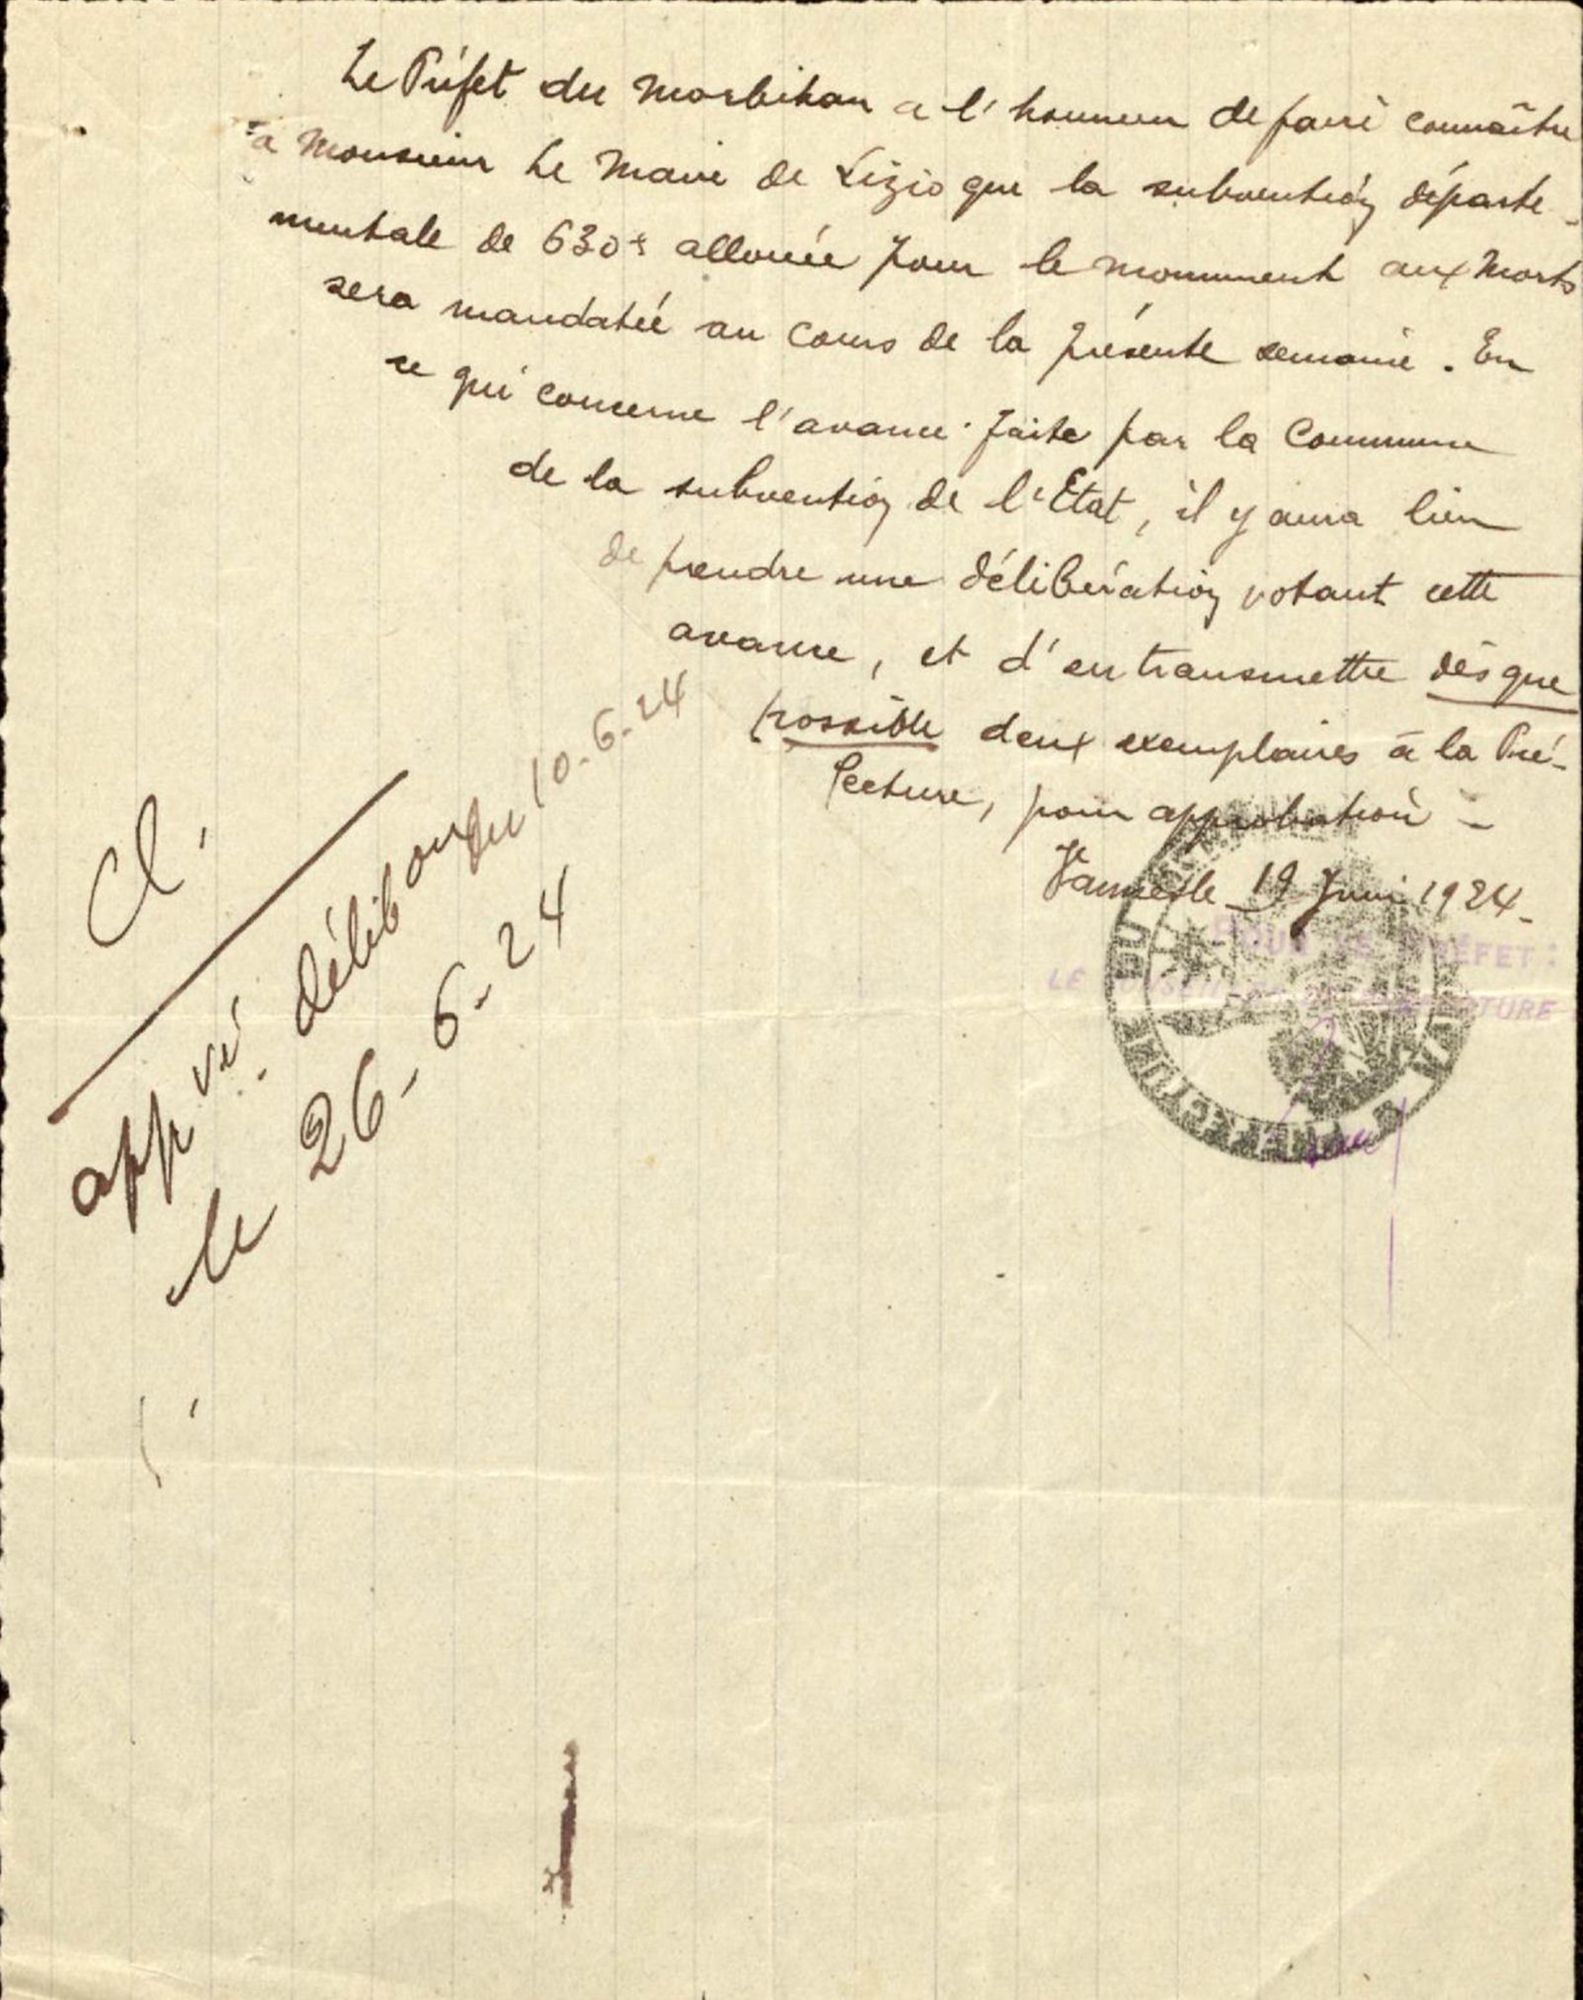 Le Préfet du Morbihan a l'honneur de faire connaître
à Monsieur Le Maire de Lizio que la subvention départe-
mentale de 630f allouée pour le monument aux Morts
sera mandatée au cours de la présente semaine. En
ce qui concerne l'avance faite par la Commune
de la subvention de l'Etat, il y aura lieu
de prendre une délibération votant cette
avance, et d'en transmettre dès que
possible deux exemplaires à la Pré-
fecture, pour approbation -
Vannes le 19 Juin 1924-
POUR LE PRÉFET :
LE CONSEILLER DE PRÉFECTURE
PRÉFECTURE DU
Cl.
app vé délib on du 10-6-24
le 26-6-24